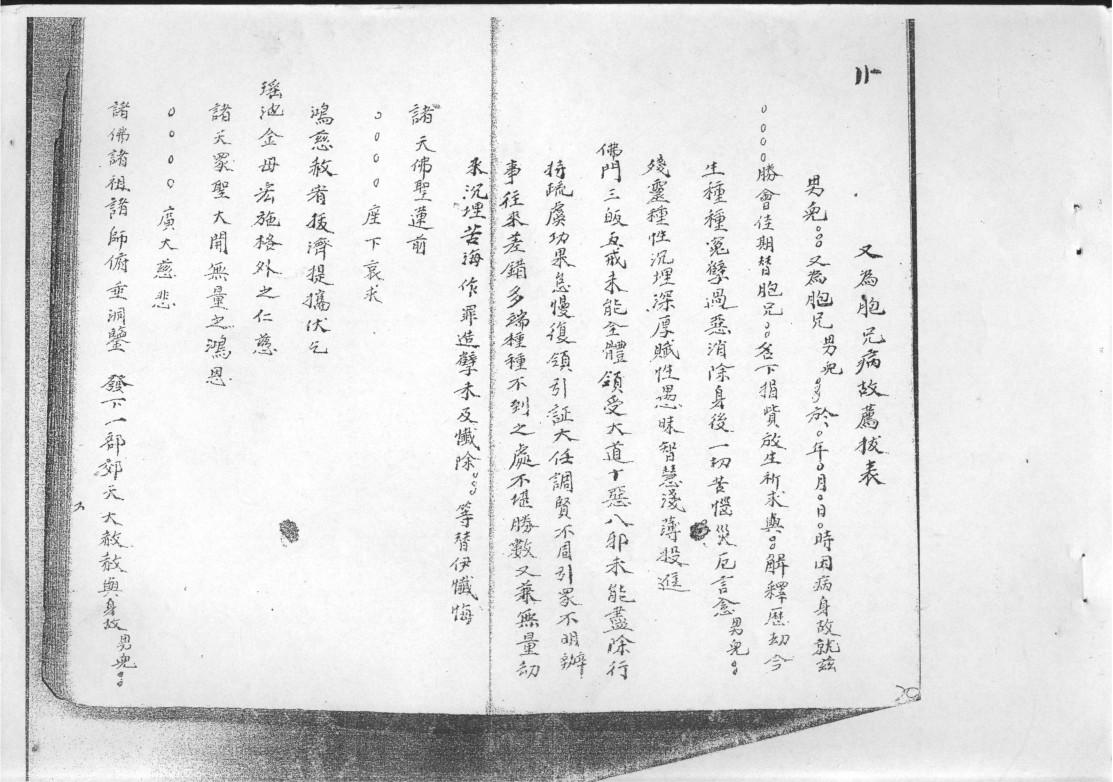 又為胞兄病故薦拔表
男兒○○又為胞兄男兒○○於○年○月○日○時因病身故就茲
○○○○勝會佳期替胞兄○○名下捐貲放生祈求與○解釋歷劫今
生種種冤孽過惡消除身後一切苦惱災厄言念男兒○
殘靈種性沉埋深厚賦性愚昧智慧淺薄投進
佛門三皈五戒未能全體領受大道十惡八邪未能盡除行
持疏虞功果怠慢復領引証大任調賢不周引眾不明辦
事往來差錯多端種種不到之處不堪勝數又兼無量劫
來沉埋苦海作罪造孽未及懺除○○等替伊懺悔
諸天佛聖蓮前
○○○○座下哀求
鴻慈赦宥援濟提攜伏乞
瑤池金母宏施格外之仁慈
諸天眾聖大開無量之鴻恩
○○○○廣大慈悲
諸佛諸祖諸師俯垂洞鑒 發下一部郊天大赦赦與身故男兒○○
20